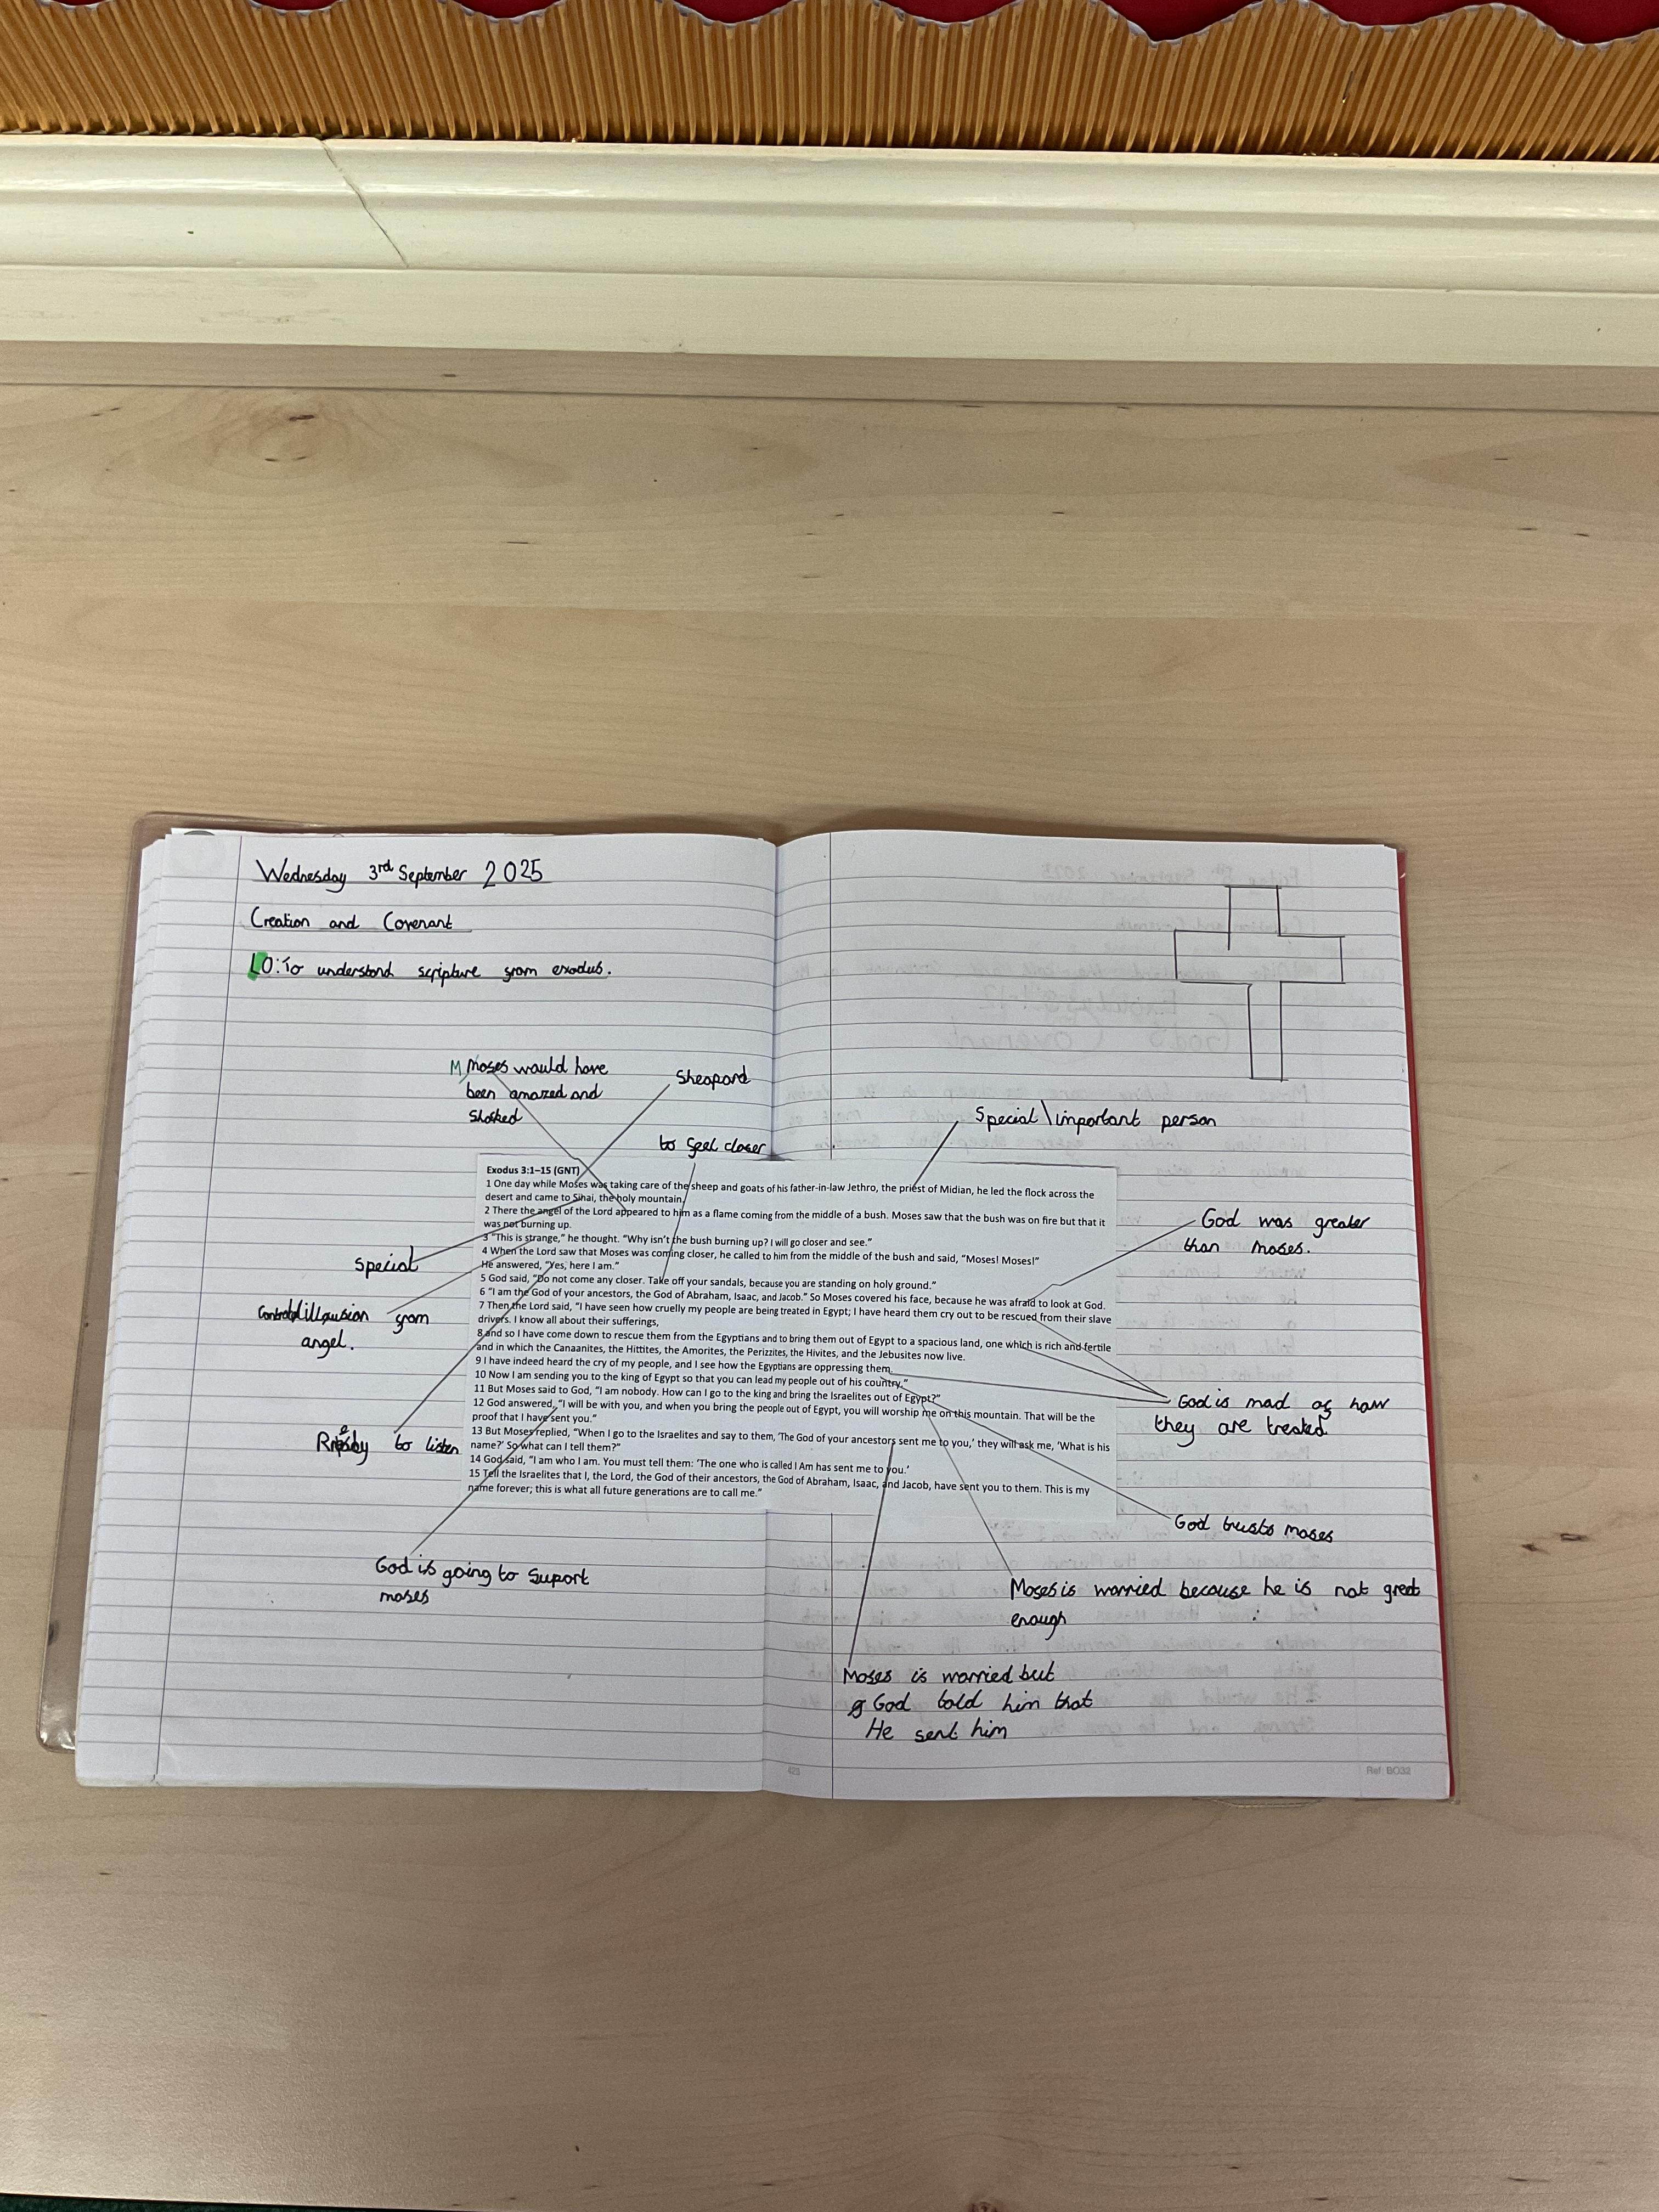 Wednesday 3rd September 2025
Creation and Covenant
LO: To understand scripture from exodus.
M moses would have
been amazed and
shoked
Sheapard
to feel closer
Special\important person
Exodus 3:1–15 (GNT)
1 One day while Moses was taking care of the sheep and goats of his father-in-law Jethro, the priest of Midian, he led the flock across the
desert and came to Sinai, the holy mountain.
2 There the angel of the Lord appeared to him as a flame coming from the middle of a bush. Moses saw that the bush was on fire but that it
was not burning up.
3 “This is strange,” he thought. “Why isn’t the bush burning up? I will go closer and see.”
4 When the Lord saw that Moses was coming closer, he called to him from the middle of the bush and said, “Moses! Moses!”
He answered, “Yes, here I am.”
5 God said, “Do not come any closer. Take off your sandals, because you are standing on holy ground.”
6 “I am the God of your ancestors, the God of Abraham, Isaac, and Jacob.” So Moses covered his face, because he was afraid to look at God.
7 Then the Lord said, “I have seen how cruelly my people are being treated in Egypt; I have heard them cry out to be rescued from their slave
drivers. I know all about their sufferings,
8 and so I have come down to rescue them from the Egyptians and to bring them out of Egypt to a spacious land, one which is rich and fertile
and in which the Canaanites, the Hittites, the Amorites, the Perizzites, the Hivites, and the Jebusites now live.
9 I have indeed heard the cry of my people, and I see how the Egyptians are oppressing them.
10 Now I am sending you to the king of Egypt so that you can lead my people out of his country.”
11 But Moses said to God, “I am nobody. How can I go to the king and bring the Israelites out of Egypt?”
12 God answered, “I will be with you, and when you bring the people out of Egypt, you will worship me on this mountain. That will be the
proof that I have sent you.”
13 But Moses replied, “When I go to the Israelites and say to them, ‘The God of your ancestors sent me to you,’ they will ask me, ‘What is his
name?’ So what can I tell them?”
14 God said, “I am who I am. You must tell them: ‘The one who is called I Am has sent me to you.’
15 Tell the Israelites that I, the Lord, the God of their ancestors, the God of Abraham, Isaac, and Jacob, have sent you to them. This is my
name forever; this is what all future generations are to call me.”
God was greater
than moses.
special
illausion from
angel.
God is mad of how
they are treated.
to listen
God trusts moses
God is going to suport
moses
Moses is worried because he is not great
enough
Moses is worried but
God told him that
He sent him
425
Ref: BO32